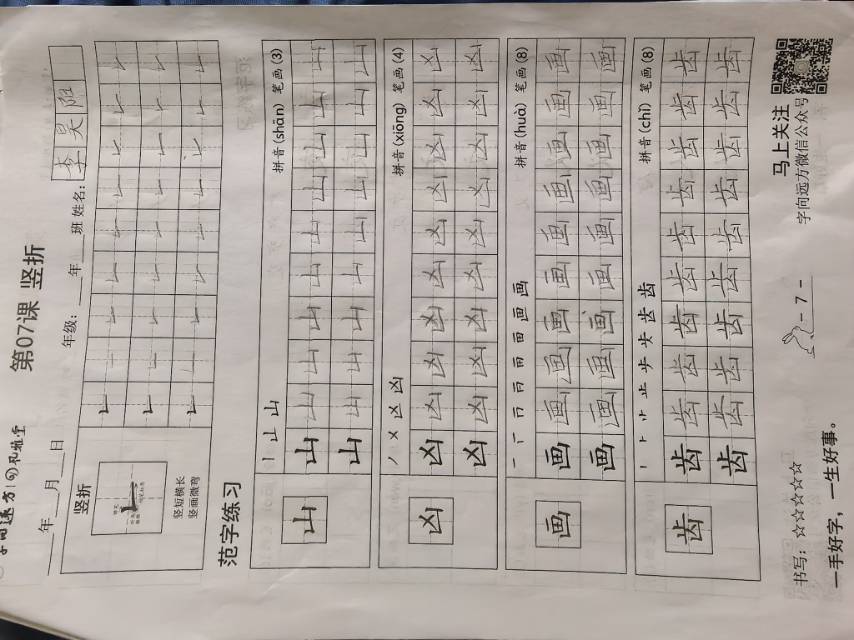 第07课 竖折
___年___月___日 年级：___年___班 姓名：李昊阳
竖折
竖短横长
竖画微弯
范字练习
山 丨 凵 山 拼音(shān) 笔画(3)
山 山 山 山 山 山 山 山 山 山
山 山 山 山 山 山 山 山 山 山
凶 丿 乂 凶 凶 拼音(xiōng) 笔画(4)
凶 凶 凶 凶 凶 凶 凶 凶 凶 凶
凶 凶 凶 凶 凶 凶 凶 凶 凶 凶
画 拼音(huà) 笔画(8)
画 画 画 画 画 画 画 画 画 画
画 画 画 画 画 画 画 画 画 画
齿 拼音(chǐ) 笔画(8)
齿 齿 齿 齿 齿 齿 齿 齿 齿 齿
齿 齿 齿 齿 齿 齿 齿 齿 齿 齿
书写：☆☆☆☆☆
一手好字，一生好事。
- 7 -
马上关注
字向远方微信公众号